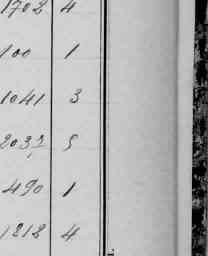 1702 4
100 1
1041 3
2037 5
490 1
1212 4